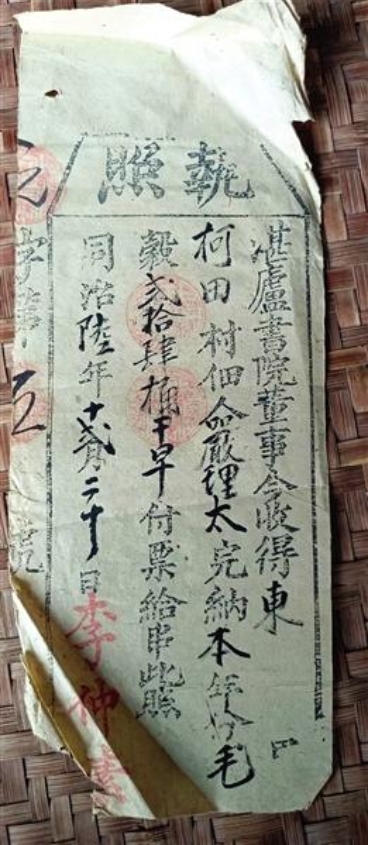 執照
湛廬書院董事今收得東
柯田村佃人嚴理太完納本年分毛
穀貳拾肆桶干早付票給串此照
同治陸年十貳月二十日
李仲
字第五號